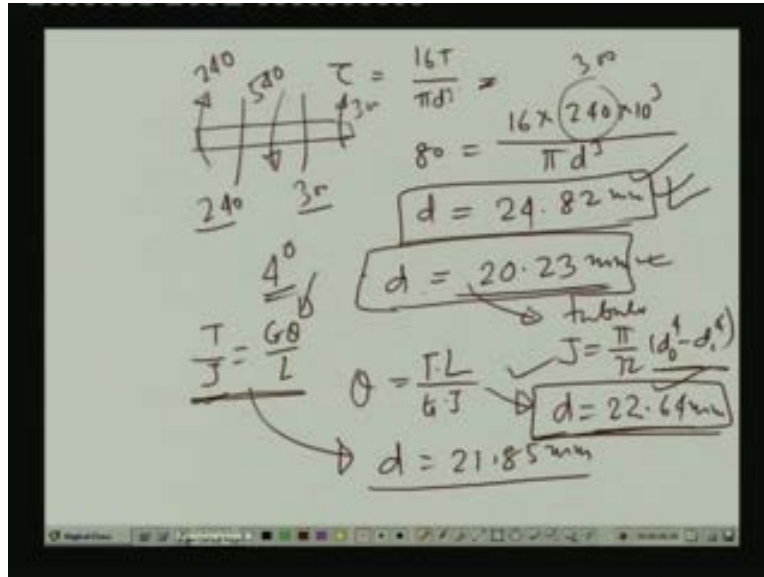 240
540
300
240 300
τ = 16T / πd³ =
300
80 = 16 × 240 × 10³ / πd³
d = 24.82 mm
4°
d = 20.23 mm
tubular
T/J = Gθ/L
θ = T.L / G.J
J = π/32 (d₀⁴ - dᵢ⁴)
d = 22.64 mm
d = 21.85 mm